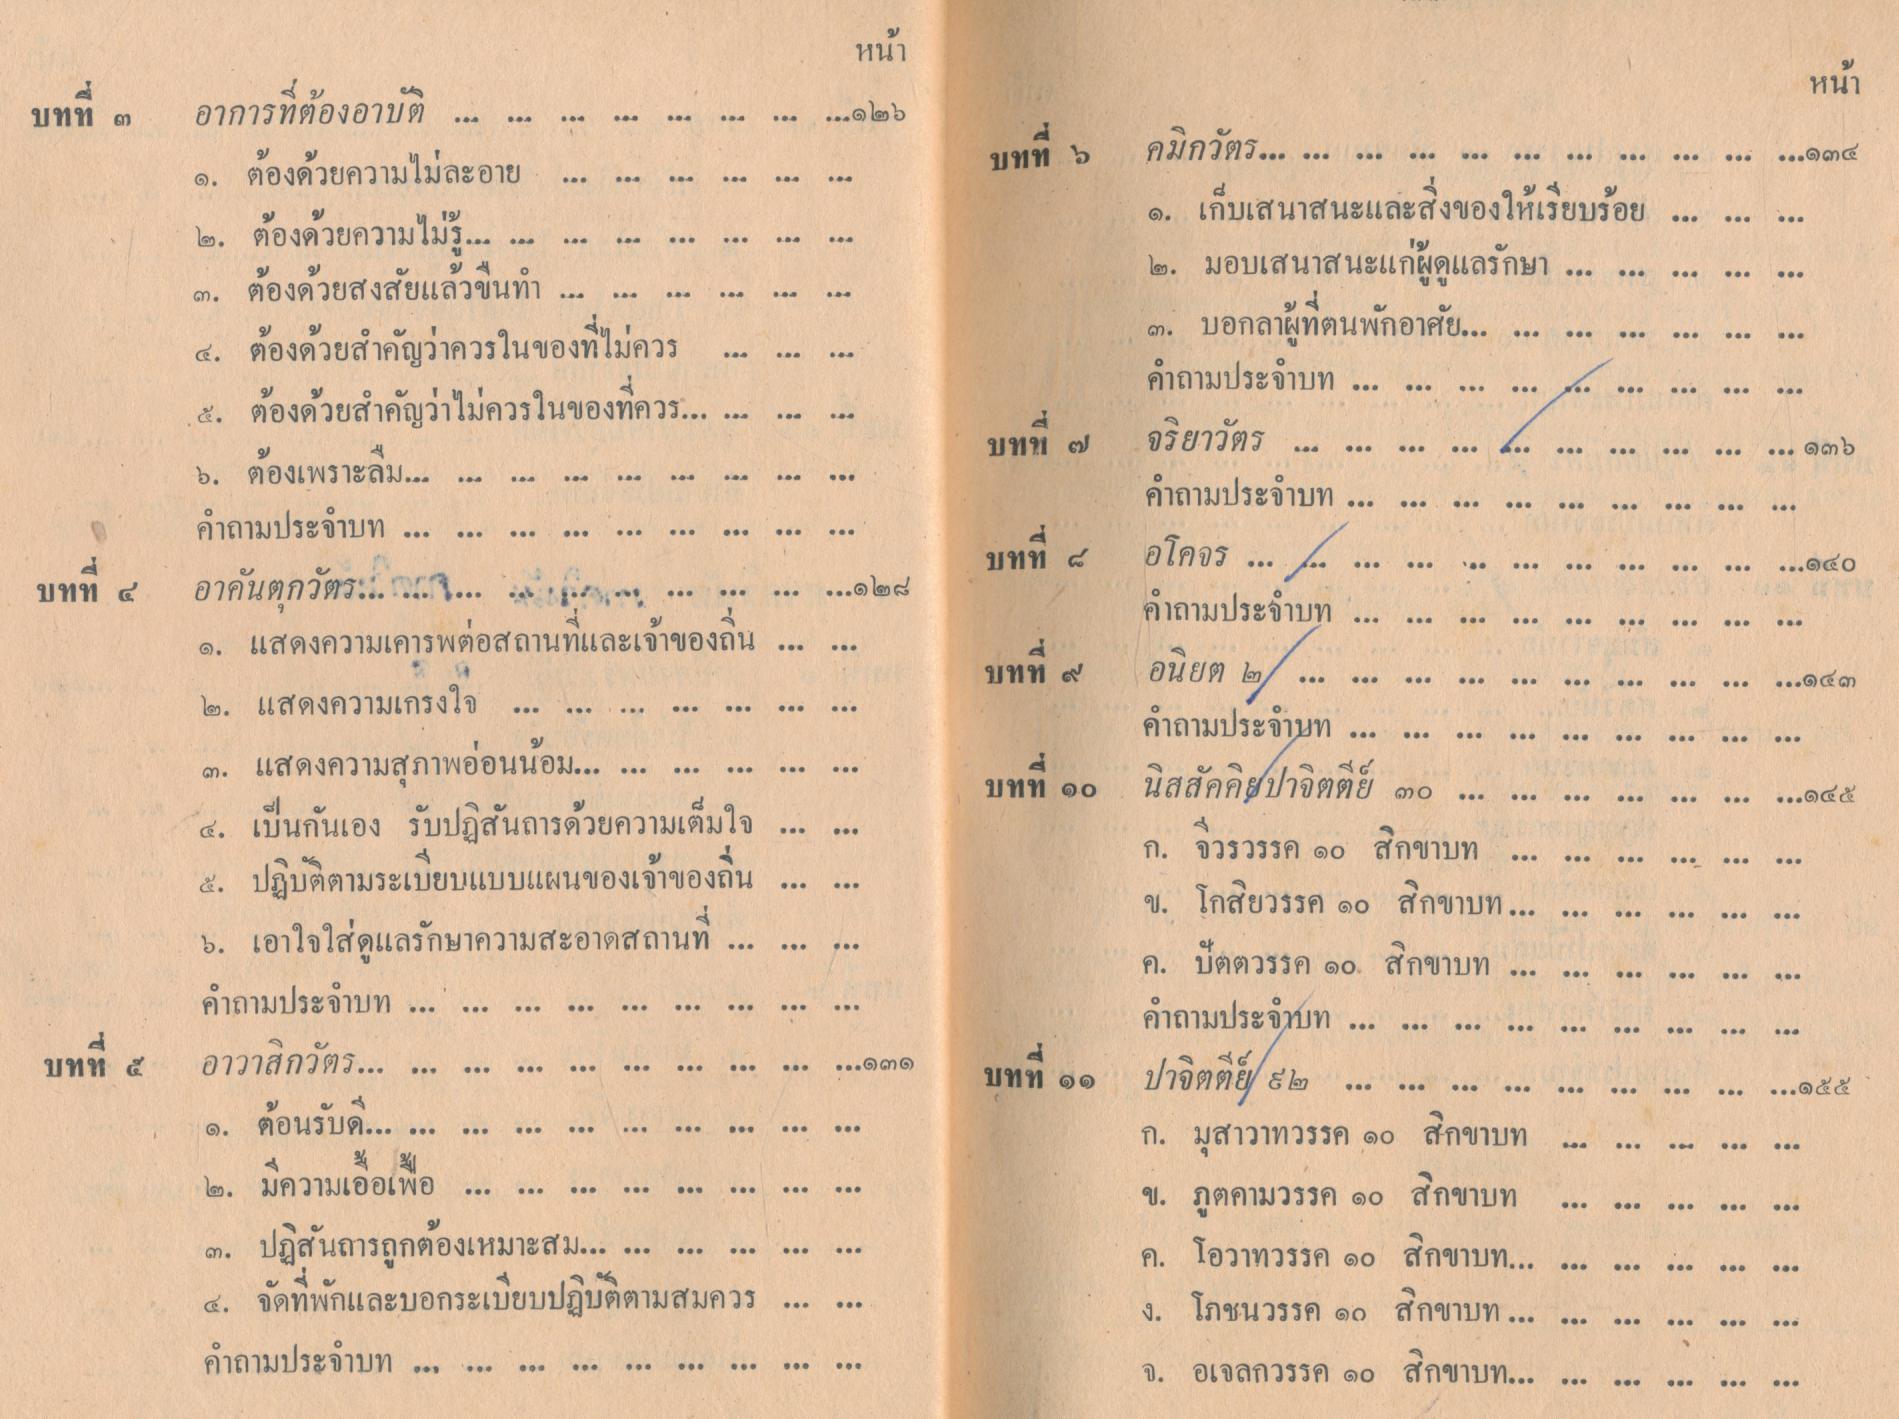 หน้า
บทที่ ๓ อาการที่ต้องอาบัติ ... ... ... ... ... ... ... ...๑๒๖
๑. ต้องด้วยความไม่ละอาย ... ... ... ... ... ...
๒. ต้องด้วยความไม่รู้... ... ... ... ... ... ... ...
๓. ต้องด้วยสงสัยแล้วขืนทำ ... ... ... ... ... ...
๔. ต้องด้วยสำคัญว่าควรในของที่ไม่ควร ... ... ...
๕. ต้องด้วยสำคัญว่าไม่ควรในของที่ควร... ... ... ...
๖. ต้องเพราะลืม... ... ... ... ... ... ... ... ...
คำถามประจำบท ... ... ... ... ... ... ... ... ...
บทที่ ๔ อาคันตุกวัตร... ... ... ... ... ... ... ... ... ...๑๒๘
๑. แสดงความเคารพต่อสถานที่และเจ้าของถิ่น ... ...
๒. แสดงความเกรงใจ ... ... ... ... ... ... ...
๓. แสดงความสุภาพอ่อนน้อม... ... ... ... ... ...
๔. เป็นกันเอง รับปฏิสันถารด้วยความเต็มใจ ... ...
๕. ปฏิบัติตามระเบียบแบบแผนของเจ้าของถิ่น ... ...
๖. เอาใจใส่ดูแลรักษาความสะอาดสถานที่ ... ... ...
คำถามประจำบท ... ... ... ... ... ... ... ... ...
บทที่ ๕ อาวาสิกวัตร... ... ... ... ... ... ... ... ... ...๑๓๑
๑. ต้อนรับดี... ... ... ... ... ... ... ... ... ...
๒. มีความเอื้อเฟื้อ ... ... ... ... ... ... ... ...
๓. ปฏิสันถารถูกต้องเหมาะสม... ... ... ... ... ...
๔. จัดที่พักและบอกระเบียบปฏิบัติตามสมควร ... ...
คำถามประจำบท ... ... ... ... ... ... ... ... ...
หน้า
บทที่ ๖ คมิกวัตร... ... ... ... ... ... ... ... ... ... ...๑๓๔
๑. เก็บเสนาสนะและสิ่งของให้เรียบร้อย ... ... ...
๒. มอบเสนาสนะแก่ผู้ดูแลรักษา ... ... ... ... ...
๓. บอกลาผู้ที่ตนพักอาศัย... ... ... ... ... ... ...
คำถามประจำบท ... ... ... ... ... ... ... ... ...
บทที่ ๗ จริยาวัตร ... ... ... ... ... ... ... ... ... ... ๑๓๖
คำถามประจำบท ... ... ... ... ... ... ... ... ...
บทที่ ๘ อโคจร ... ... ... ... ... ... ... ... ... ... ...๑๔๐
คำถามประจำบท ... ... ... ... ... ... ... ... ...
บทที่ ๙ อนิยต ๒ ... ... ... ... ... ... ... ... ... ...๑๔๓
คำถามประจำบท ... ... ... ... ... ... ... ... ...
บทที่ ๑๐ นิสสัคคิยปาจิตตีย์ ๓๐ ... ... ... ... ... ... ...๑๔๕
ก. จีวรวรรค ๑๐ สิกขาบท ... ... ... ... ... ...
ข. โกสิยวรรค ๑๐ สิกขาบท... ... ... ... ... ...
ค. ปัตตวรรค ๑๐ สิกขาบท ... ... ... ... ... ...
คำถามประจำบท ... ... ... ... ... ... ... ... ...
บทที่ ๑๑ ปาจิตตีย์ ๙๒ ... ... ... ... ... ... ... ... ...๑๕๕
ก. มุสาวาทวรรค ๑๐ สิกขาบท ... ... ... ... ...
ข. ภูตคามวรรค ๑๐ สิกขาบท ... ... ... ... ...
ค. โอวาทวรรค ๑๐ สิกขาบท... ... ... ... ... ...
ง. โภชนวรรค ๑๐ สิกขาบท... ... ... ... ... ...
จ. อเจลกวรรค ๑๐ สิกขาบท... ... ... ... ... ...